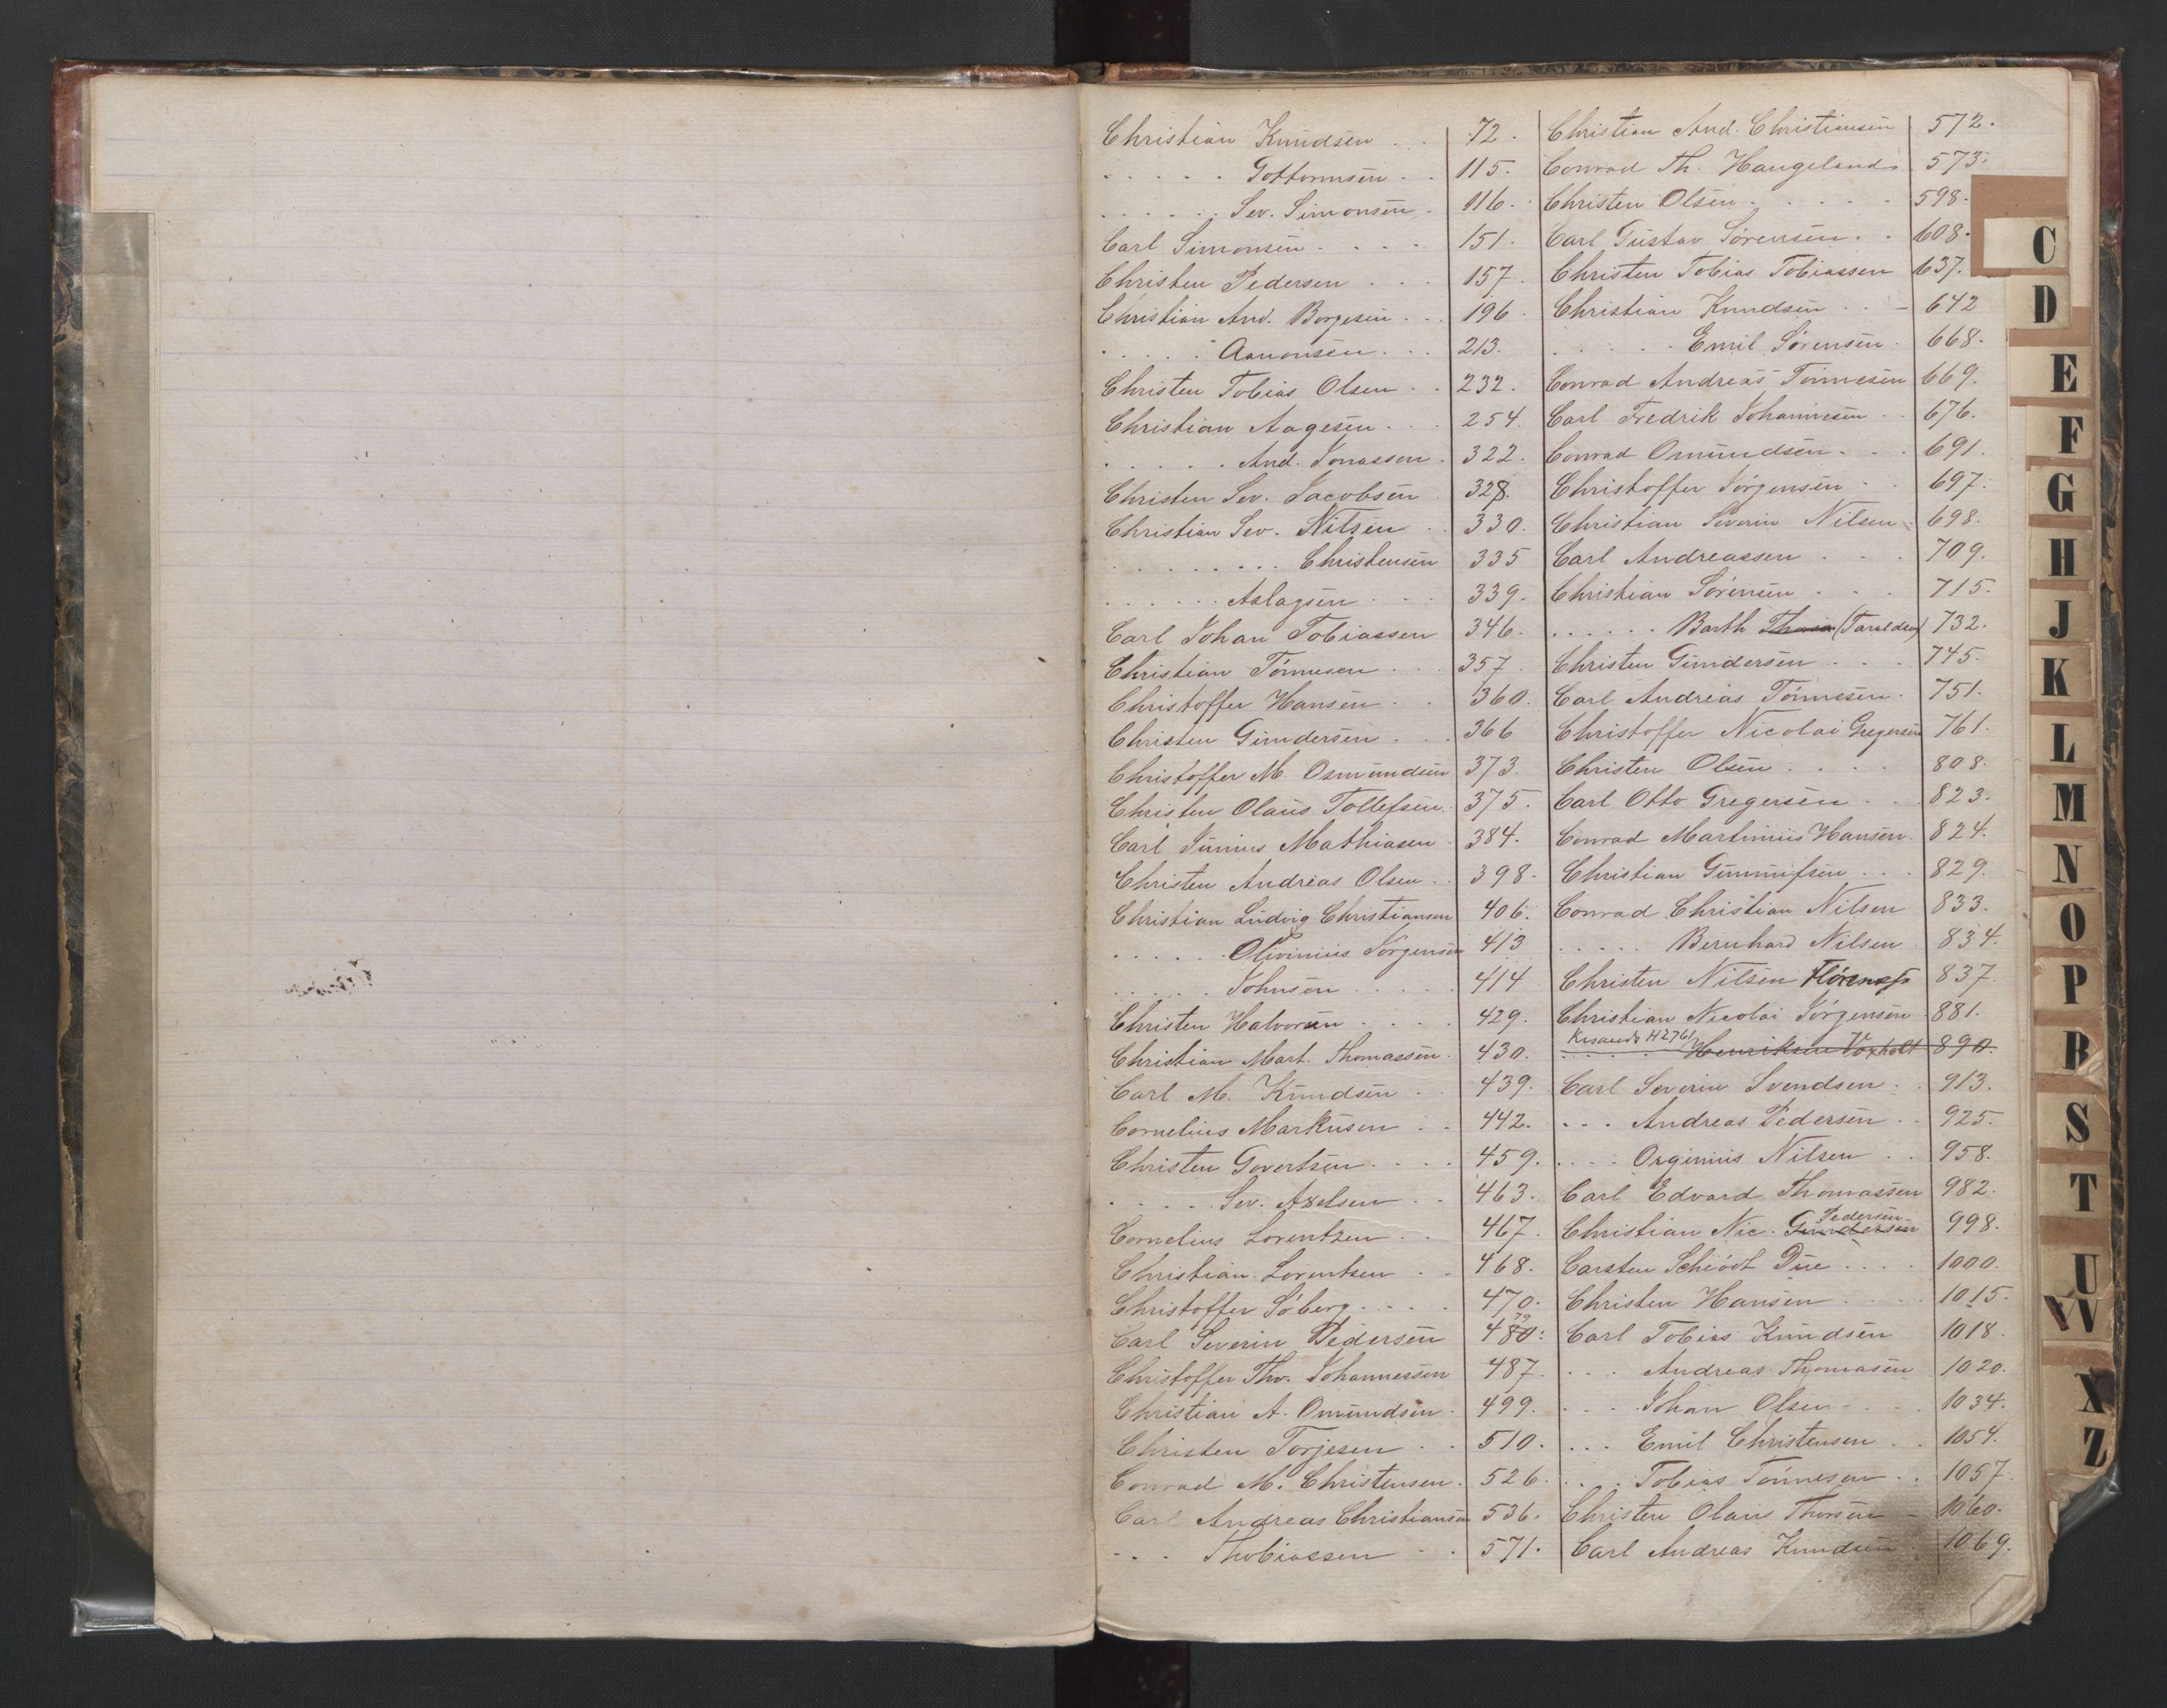 Christian Knudsen . . 72.
. . . . . Gottormsen . . 115.
. . . . . . Sev. Simonsen . 116.
Carl Simonsen . . . . 151.
Christen Pedersen . . . 157.
Christian And. Borgesen . . 196.
. . . . . Aanonsen . . . 213.
Christen Tobias Olsen . . 232.
Christian Aagesen . . . 254.
. . . . . . And. Jonassen . 322.
Christen Sev. Jacobsen 328.
Christian Sev. Nilsen . . 330.
. . . . . . . . . Christensen 335
. . . . . . Aslagsen . . . 339.
Carl Johan Tobiassen 346.
Christian Tönnesen . . . 357.
Christoffer Hansen . . 360.
Christen Gundersen . . . 366
Christoffer M. Osmundsen 373.
Christen Olaus Tollefsen 375.
Carl Junius Mathiasen . 384.
Christen Andreas Olsen . . 398.
Christian Ludvig Christiansen 406.
. . . . . . Olivinius Jörgensen 413
. . . . . Johnsen . . . . . 414
Christen Halvorsen . . . . 429.
Christian Mart. Thomassen . 430.
Carl M. Knudsen . . 439.
Cornelius Markusen . . 442.
Christen Govertsen . . . . 459.
. . . . . Sev. Axelsen . . 463.
Cornelius Lorentzen . . 467.
Christian Lorentsen . . 468.
Christoffer Söberg . . . . 470.
79
Carl Severin Pedersen 480:
Christoffer Thv. Johannessen 487.
Christian A. Omundsen . 499.
Christen Torjesen . . 510.
Conrad M. Christensen . 526.
Carl Andreas Christiansen 536.
. . . Thobiassen . . 571.
Christian And. Christiansen 572.
Conrad Th. Haugelands 573.
Christen Olsen . . . . . 598.
Carl Gustav Sörensen . . 608.
Christen Tobias Tobiassen 637.
Christian Knudsen . . - 642
. . . . . Emil Sörensen . 668.
Conrad Andreas Tönnesen 669.
Carl Fredrik Johannesen . . 676.
Conrad Omundsen . . . 691.
Christoffer Jörgensen . . 697.
Christian Severin Nilsen 698.
Carl Andreassen . . . 709.
Christian Sörensen . . . 715.
. . . . . . Barth (Taraldsen) 732.
Christen Gundersen . . . 745.
Carl Andreas Tönnesen . 751.
Christoffer Nicolai Gregersen 761.
Christen Olsen . . . . 808.
Carl Otto Gregersen . . 823.
Conrad Martinius Hansen . 824.
Christian Gunnufsen . . . 829.
Conrad Christian Nilsen 833.
. . . . . Bernhard Nilsen 834.
Christen Nilsen Florenæs 837.
Christian Nicolai Jörgensen . 881.
Krsands H2761
. . . . . Henriksen Voxholt 890.
Carl Severin Svendsen . . 913.
. . . Andreas Pedersen . . 925.
. . . . Orginius Nilsen . . 958.
Carl Edvard Thomassen 982.
Pedersen
Christian Nic. Gundersen 998.
Carsten Schiödt Due . . . . 1000.
Christen Hansen . . . . 1015.
Carl Tobias Knudsen 1018.
. . . Andreas Thomasen 1020.
. . . Johan Olsen - . . 1034.
. . . Emil Christensen . . 1054.
. . . Tobias Tönnesen . . 1057.
Christen Olaus Thorsen - 1060.
Carl Andreas Knudsen . 1069.
C
D
E
F
G
H
J
K
L
M
N
O
P
R
S
T
U
W
X
Z